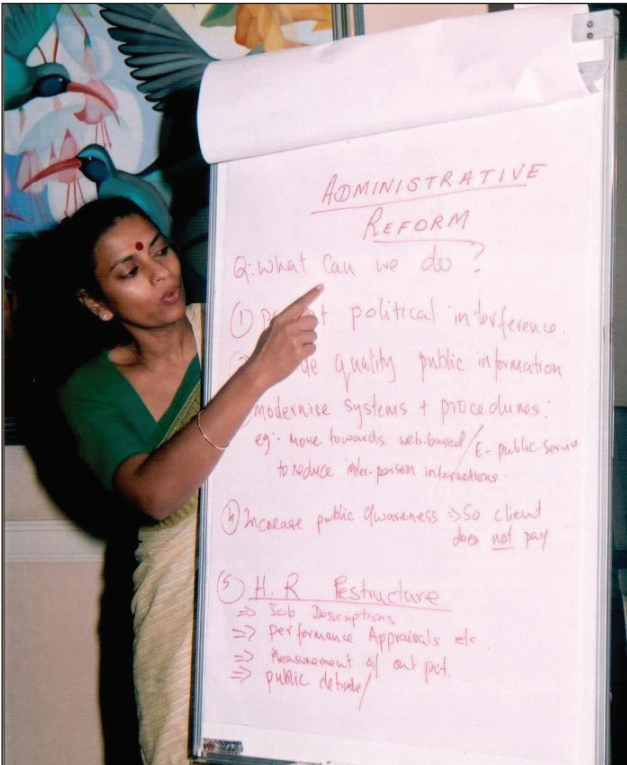 ADMINISTRATIVE
REFORM
Q: What can we do ?
① political interference.
quality public information
modernise systems + procedures:
eg:- move towards web-based / E- public service
to reduce inter-person interactions.
④ Increase public awareness => So client
does not pay
⑤ H. R Restructure
=> Job Descriptions
=> performance Appraisals etc
=> Measurement of out put.
=> public debate/